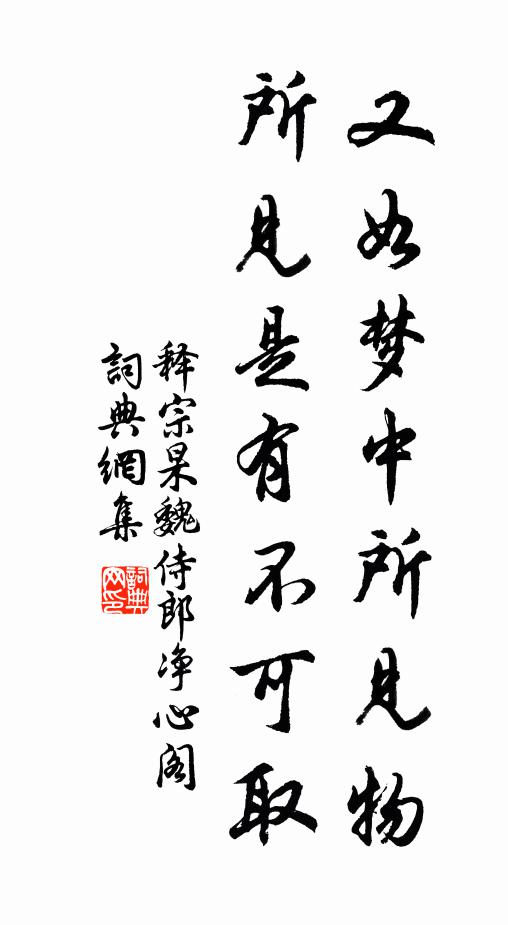 又如梦中所见物
所见是有不可取
释宗杲魏侍郎净心阁
詞典網集
詞典
网印